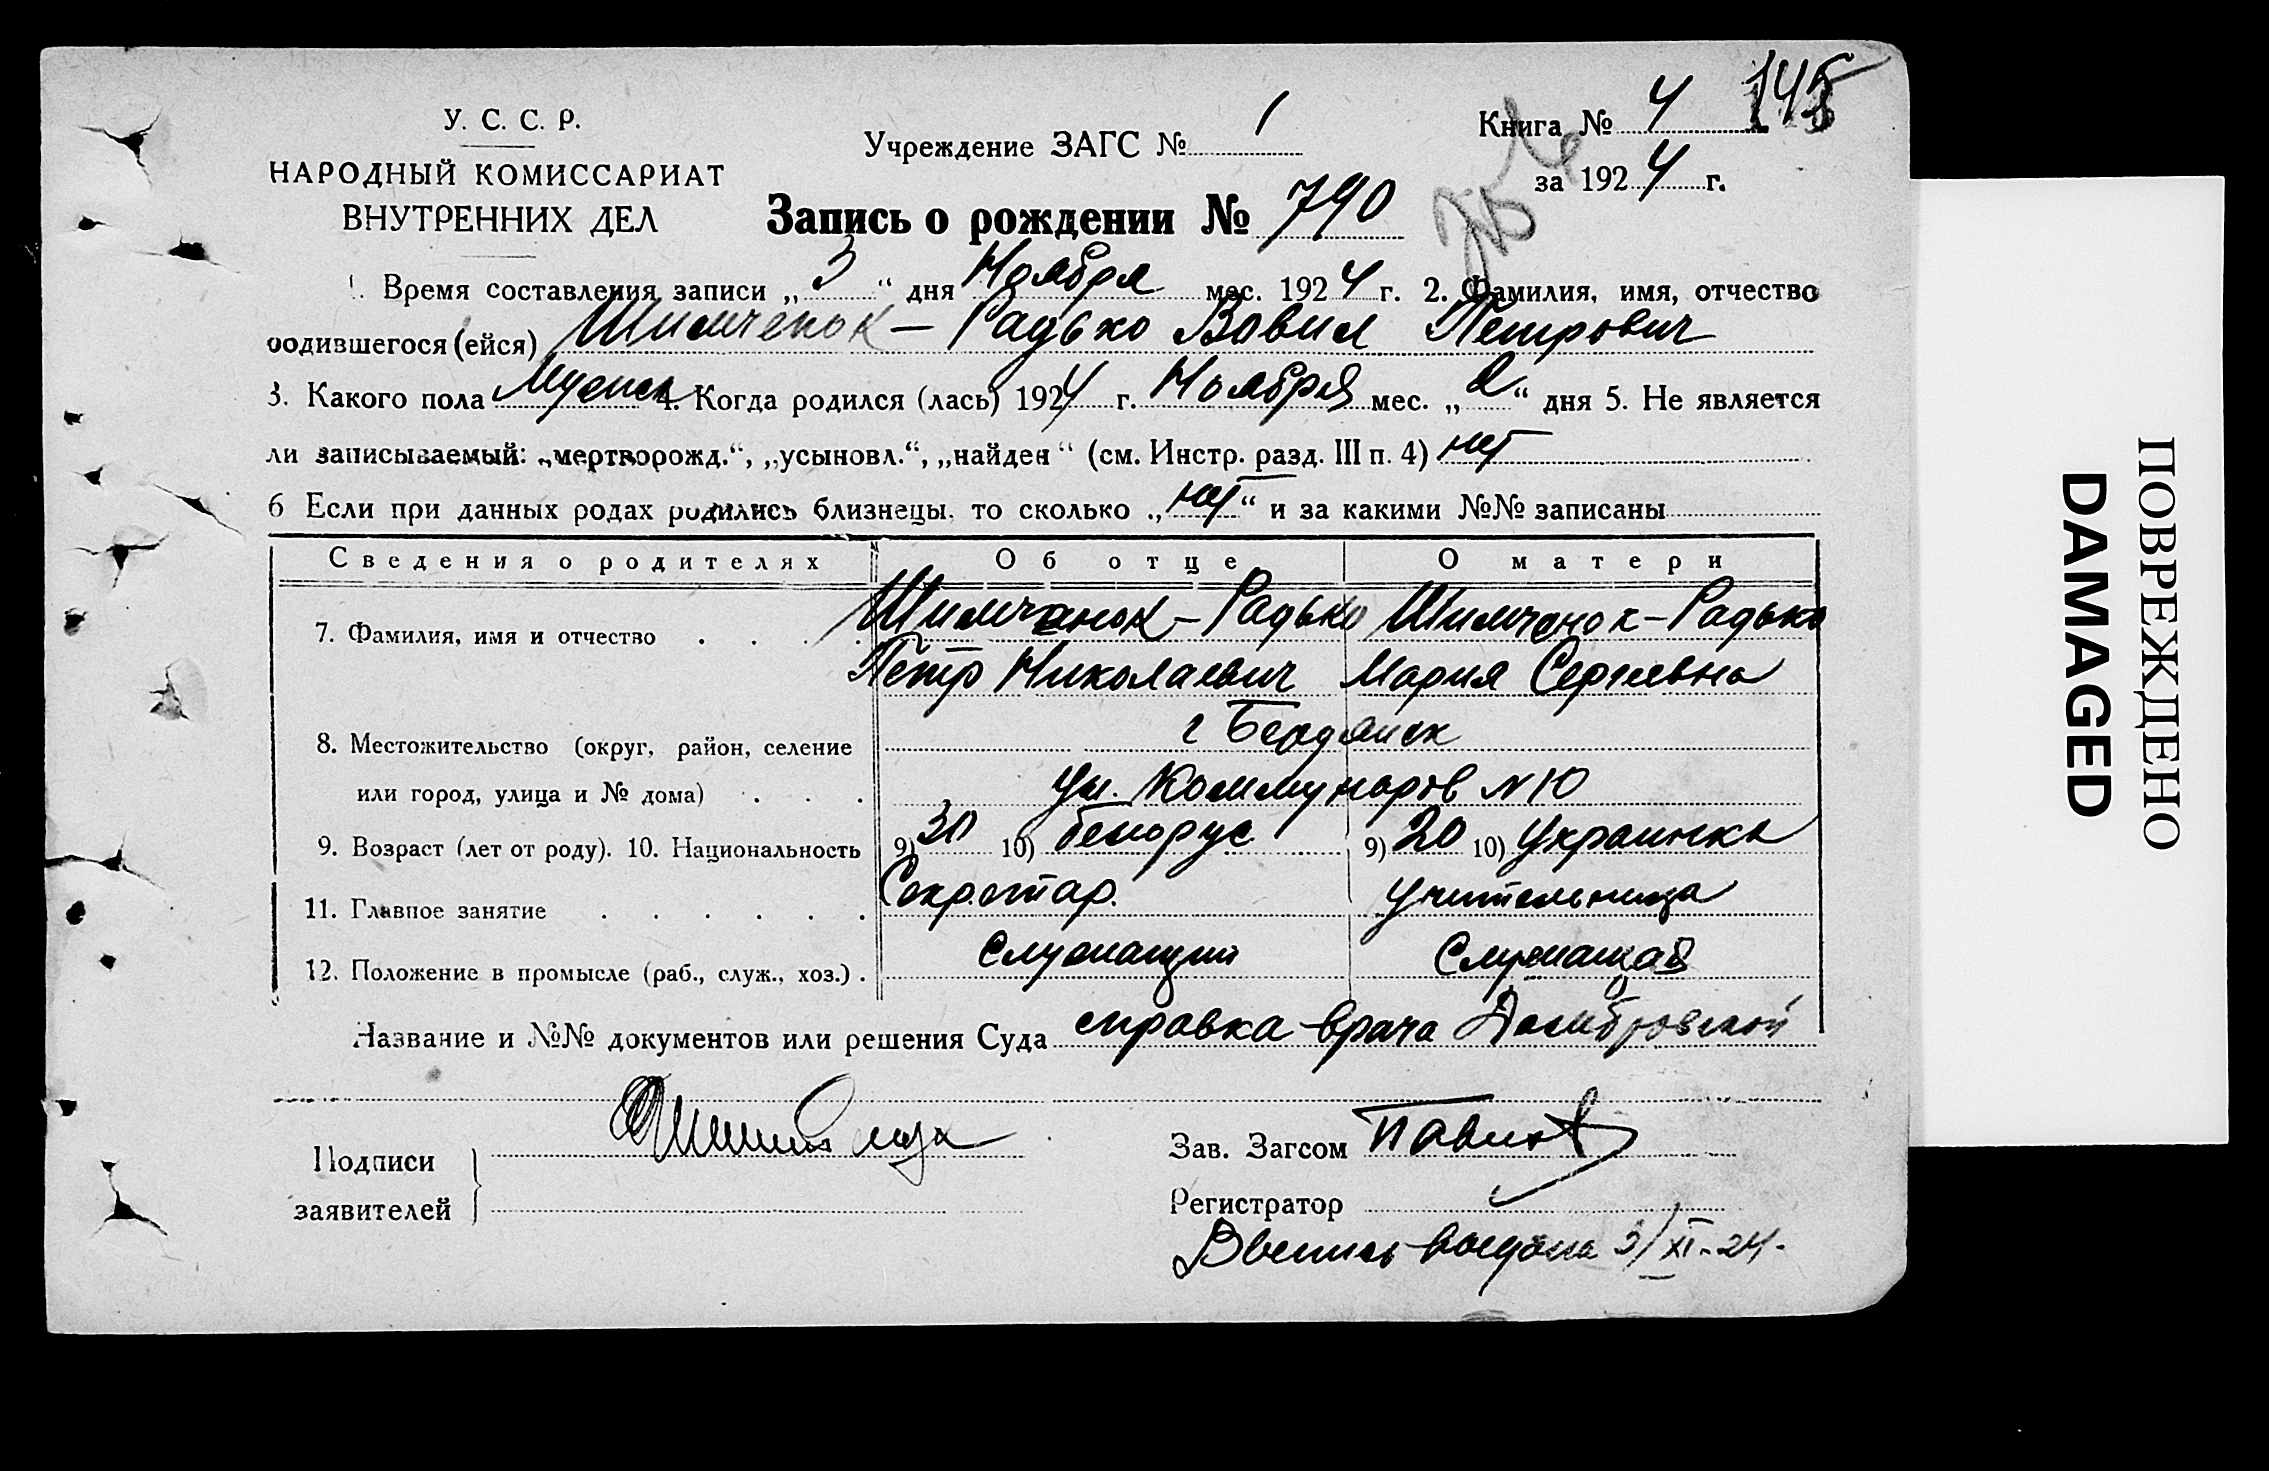 145
У. С. С. Р.
НАРОДНЫЙ КОМИССАРИАТ
ВНУТРЕННИХ ДЕЛ
Учреждение ЗАГС № 1
Книга № 4
за 1924 г.
Запись о рождении № 790
1. Время составления записи „3“ дня Ноября мес. 1924 г. 2. Фамилия, имя, отчество
родившегося (ейся) Шимченок - Радько Вовил Петрович
3. Какого пола Мужск 4. Когда родился (лась) 1924 г. Ноября мес. „2“ дня 5. Не является
ли записываемый: „мертворожд.“, „усыновл.“, „найден“ (см. Инстр. разд. III п. 4) нет
6 Если при данных родах родились близнецы, то сколько „нет“ и за какими №№ записаны
Сведения о родителях Об отце О матери
7. Фамилия, имя и отчество Шимчанок - Радько Шимченок - Радько
Петр Николаевич Мария Сергеевна
8. Местожительство (округ, район, селение г Бердянск
или город, улица и № дома) ул. Коммунаров N 10
9. Возраст (лет от роду). 10. Национальность 9) 30 10) белорус 9) 20 10) Украинка
11. Главное занятие Секретар. учительница
12. Положение в промысле (раб., служ., хоз.) Служащий Служащая
Название и №№ документов или решения Суда справка врача Домбровской
Подписи
заявителей
Зав. Загсом Павлов
Регистратор
Выпись выдана 3/XI-24.
ПОВРЕЖДЕНО
DAMAGED